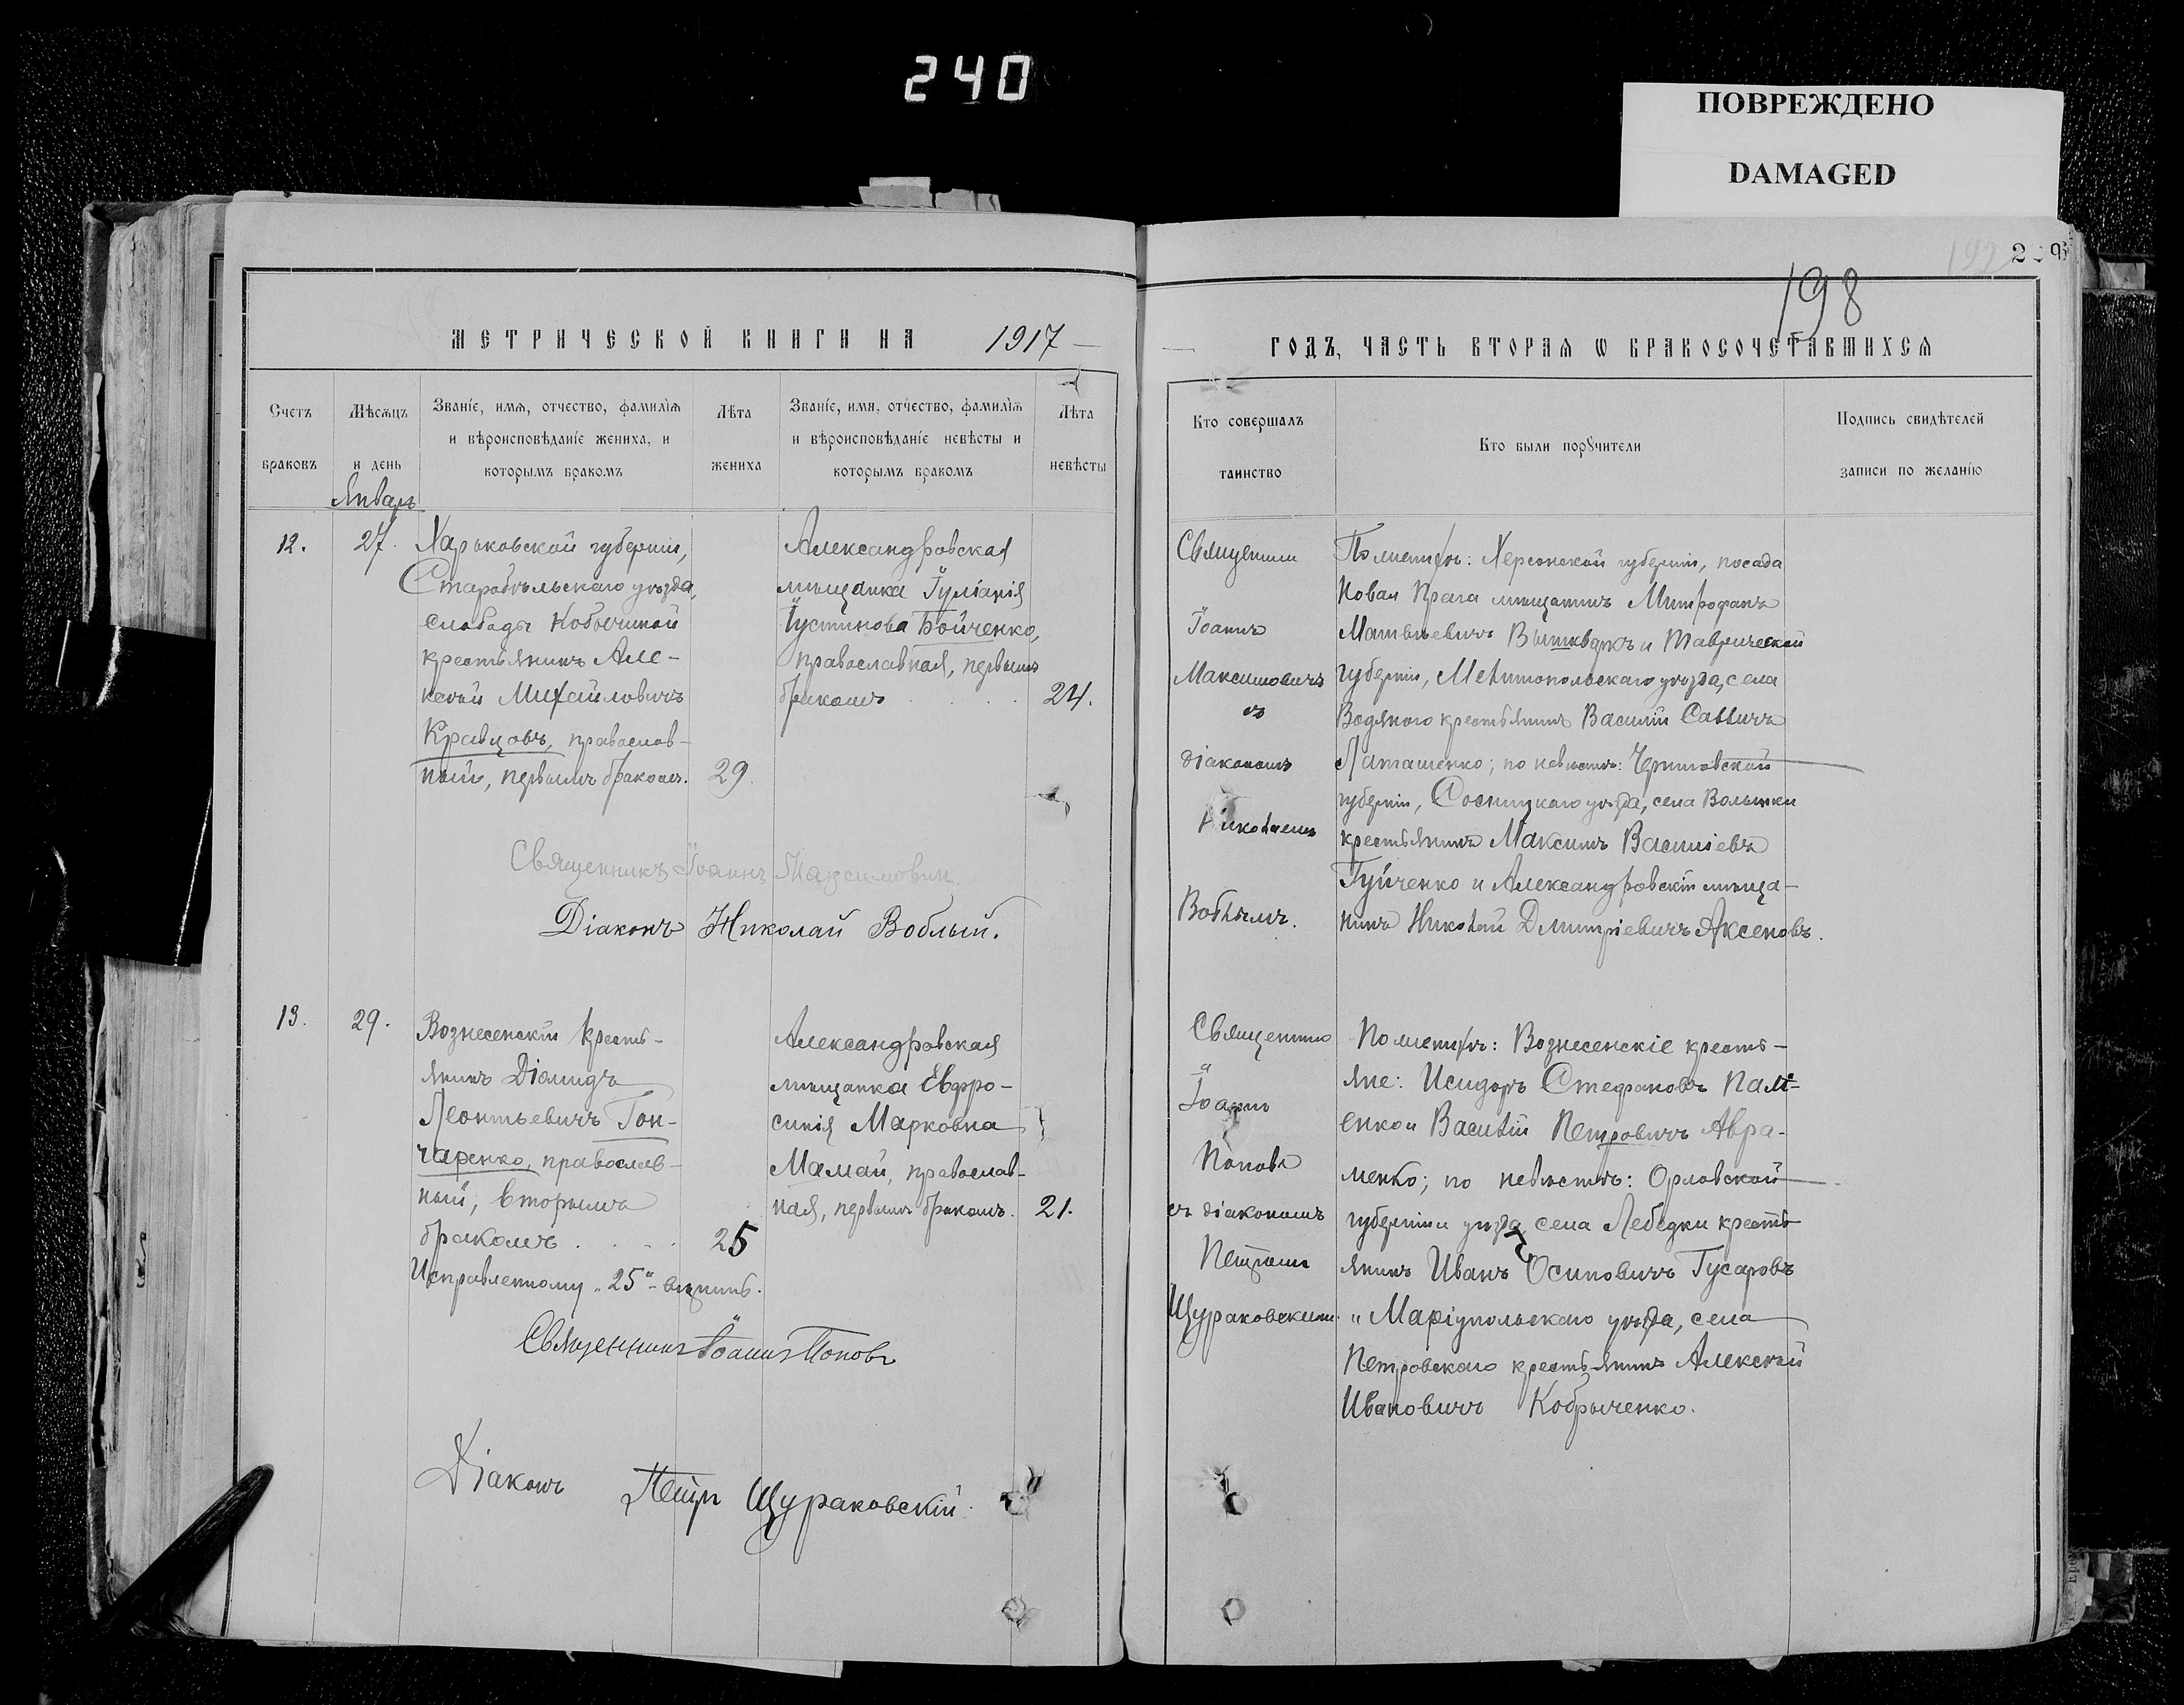 240
ПОВРЕЖДЕНО
DAMAGED
198
МЕТРИЧЕСКОЙ КНИГИ НА 1917
ГОДЪ, ЧАСТЬ ВТОРАЯ Ѡ БРАКОСОЧЕТАВШИХСЯ
Счетъ браковъ
Мѣсяцъ и день
Званіе, имя, отчество, фамилія
и вѣроисповѣданіе жениха, и
которымъ бракомъ
Лѣта жениха
Званіе, имя, отчество, фамилія
и вѣроисповѣданіе невѣсты и
которымъ бракомъ
Лѣта невѣсты
Кто совершалъ
таинство
Кто были порꙋчители
Подпись свидѣтелей
записи по желанію
Январь
12.
27.
Харьковской губерніи,
Старобѣльскаго уѣзда,
слободы
крестьянинъ Але-
ксѣй Михайловичъ
Кравцовъ, православ-
ный, первымъ бракомъ.
29.
Александровская
мѣщанка Іуліанія
Іустинова Бойченко,
православная, первымъ
бракомъ
24.
Священник
Іоаннъ
Максимовичъ
съ
діакономъ
Николаемъ
Воблымъ.
По женихѣ: Херсонской губерніи, посада
Новая Прага мѣщанинъ Митрофанъ
Матвѣевичъ и Таврической
губерніи, Мелитопольскаго уѣзда, села
Водяного крестьянинъ Василій Саввичъ
Латашенко; по невѣстѣ: Черниговской
губерніи, Сосницкаго уѣзда, села Волынки
крестьянинъ Максимъ Василіевъ
Гуйченко и Александровскій мѣща-
нинъ Николай Дмитріевичъ Аксеновъ.
Священникъ Іоаннъ Максимович
Діаконъ Николай Воблый.
13.
29.
Вознесенскій кресть-
янинъ Діомидъ
Леонтьевичъ Гон-
чаренко, православ-
ный, вторымъ
бракомъ
25
Исправленному „25“ вѣрить.
Александровская
мѣщанка Евфро-
синія Марковна
Мамай, православ-
ная, первымъ бракомъ.
21.
Священник
Іоаннъ
Поповъ
съ діакономъ
Петромъ
Щураковскимъ.
По женихѣ: Вознесенскіе кресть-
яне: Исидоръ Стефановъ Пали-
енко и Василій Петровичъ Авра-
менко; по невѣстѣ: Орловской
губерніи и уѣзда села Лебедки кресть-
янинъ Иванъ Осиповичъ Гусаровъ
и Маріупольскаго уѣзда, села
Петровскаго крестьянинъ Алексѣй
Ивановичъ Кобрыченко.
Священникъ Іоаннъ Поповъ
Діаконъ Петръ Щураковскій.